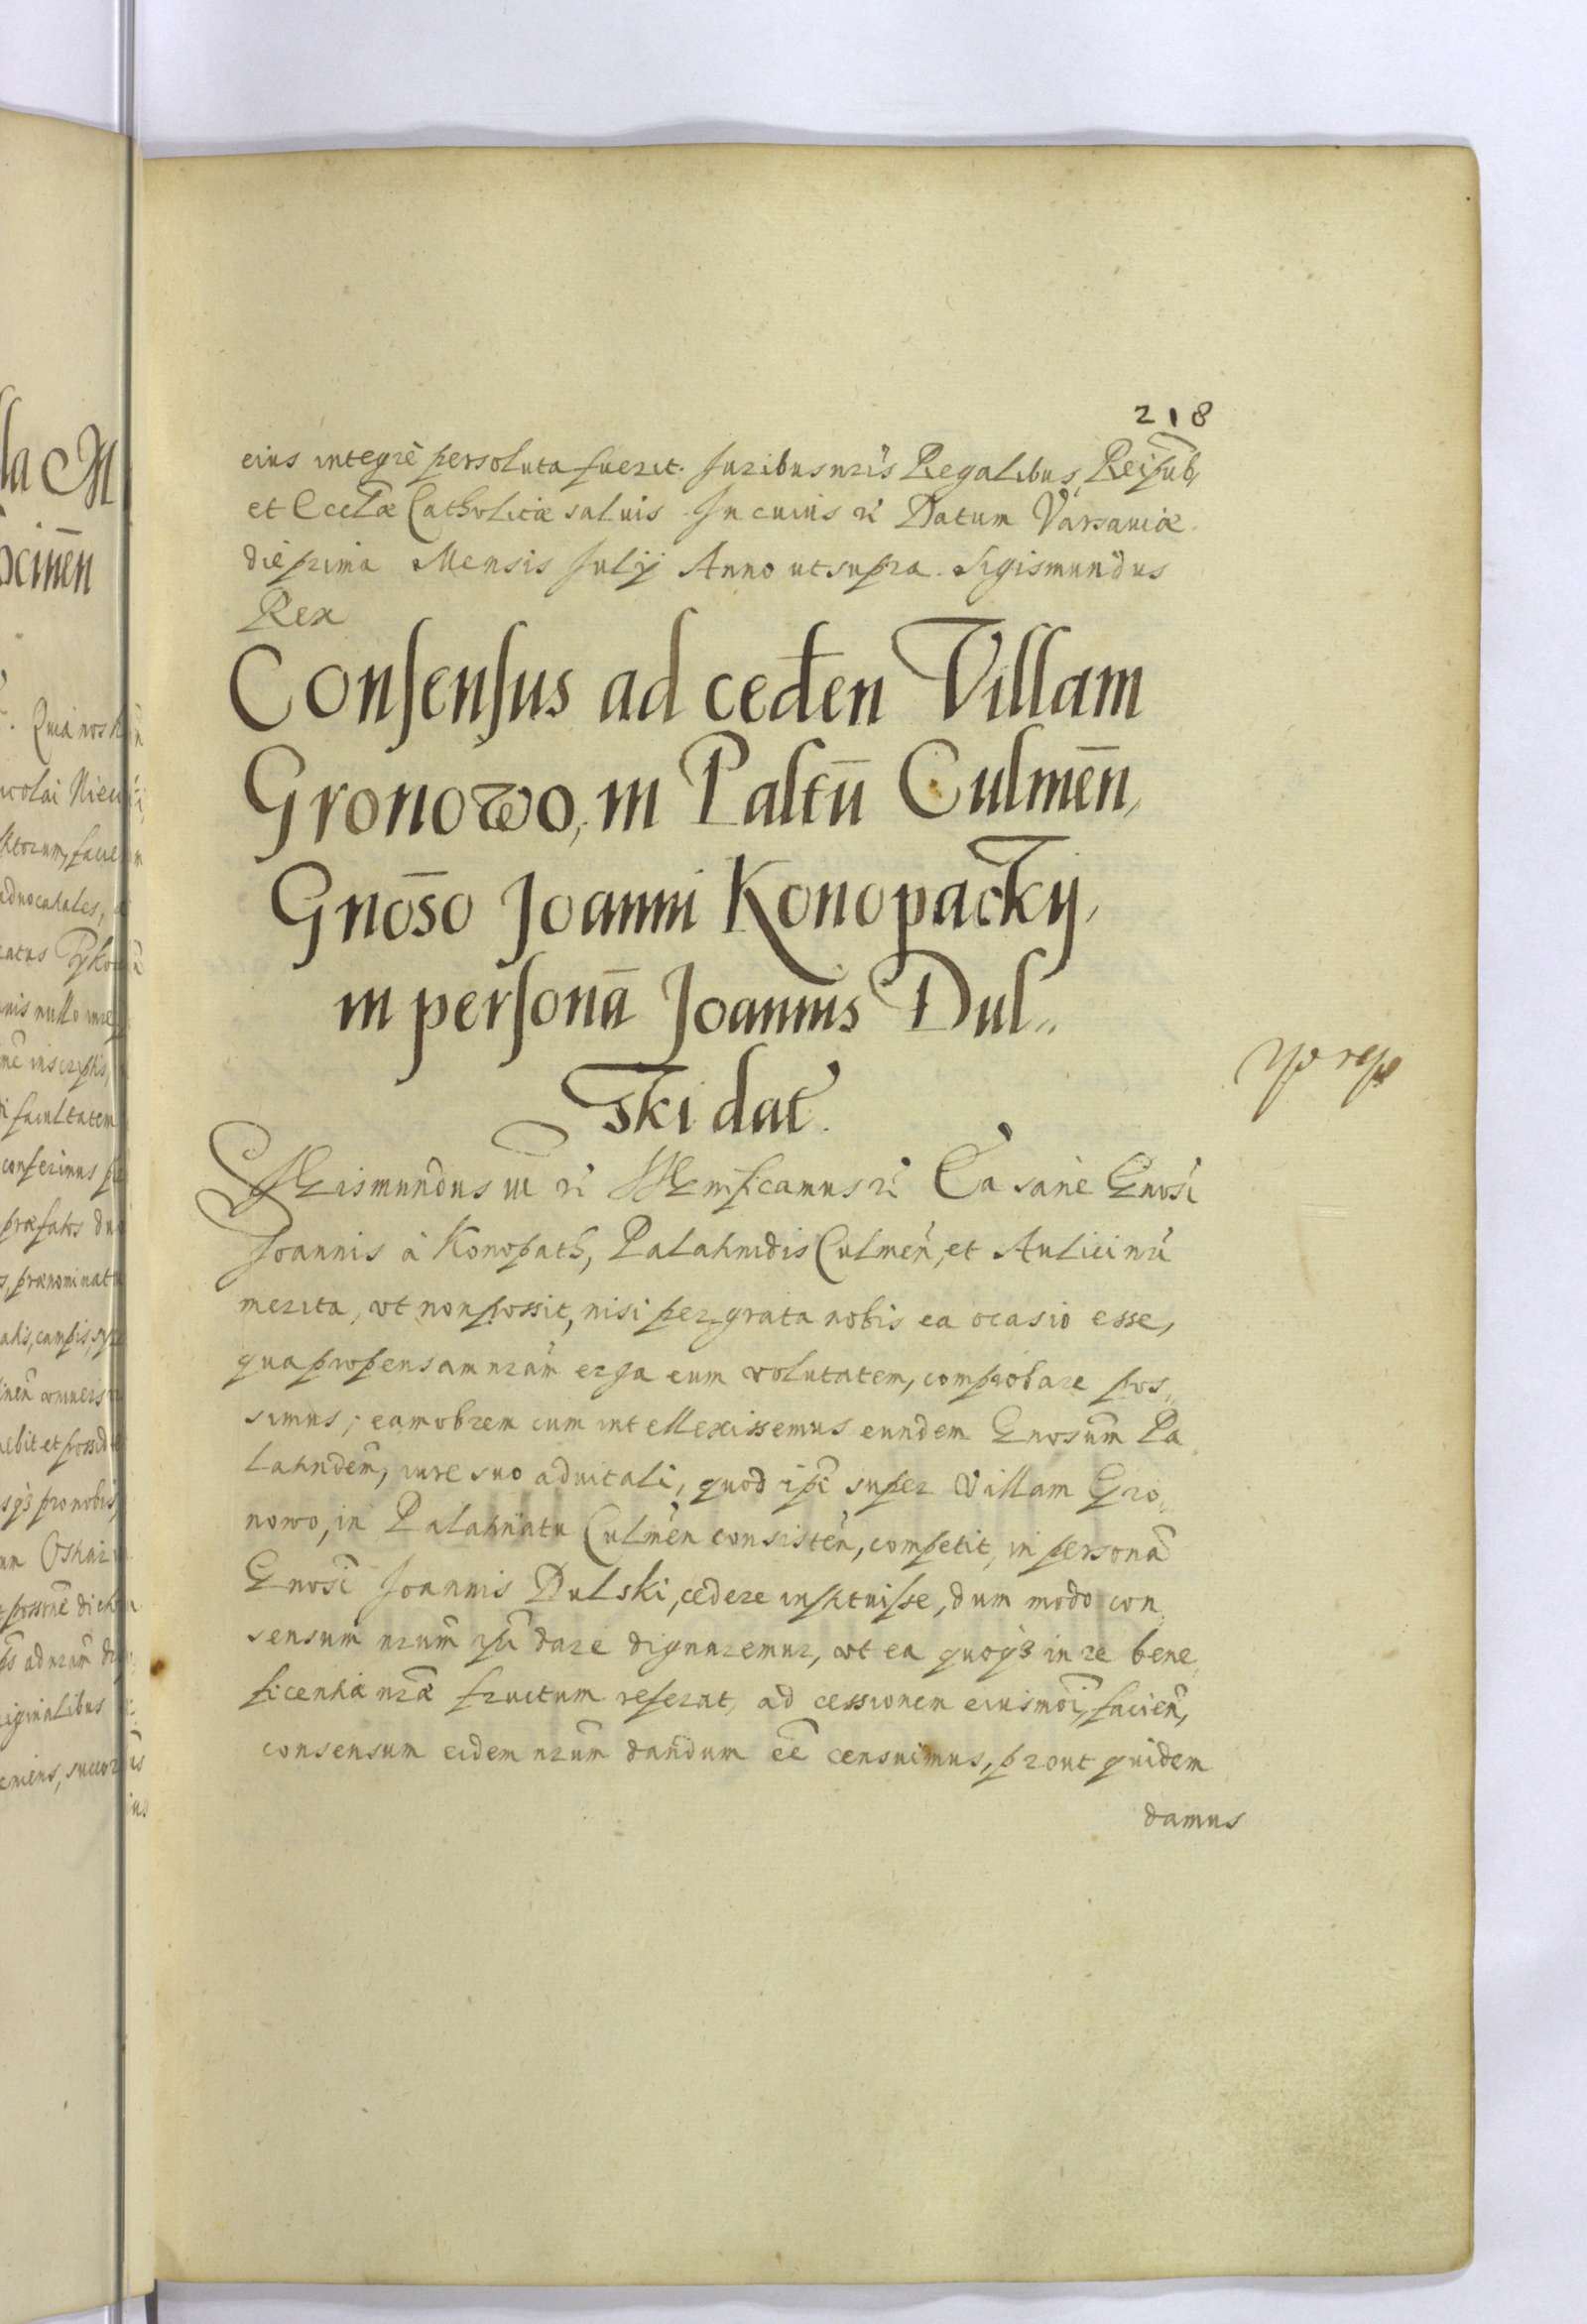 218
eius integrè persoluta fuerit. Iuribus nr̃is Regalibus, Reipub,
et Eccl̃æ Catholicæ saluis. In cuius rei Datum Varsauiæ
die prima Mensis Iulij Anno ut supra. Sigismundus
Rex
Consensus ad ceden̄ Villam
Gronowo, in Paltū Culmen̄,
Gnōso Joanni Konopackij,
in personā Joannis Dul„
ski dat̄.
Sigismundus III rc̃ Significamus rc̃ Ea sanè Gnosi
Joannis à Konopath, Palatinidis Culmeñ, et Aulici nr̃i
merita, vt non possit, nisi pergrata nobis ea ocasio esse,
qua propensam nr̃am erga eum volutatem, comprobare pos„
simus; eam obrem cum intellexissemus eundem Gnosum̃ Pa
latindem̃, iure suo aduitali, quod ipi̇̃ super Villam Gro„
nowo, in Palatinatu Culmeñ consisteñ, competit, in personã
Gnosi Joannis Dulski, cedere instituisse, dum modo con
sensum nr̃um dare dignaremur, vt ea quoq̃ in re bene
ficentiæ nr̃æ fructum referat, ad cessionem eiusmoi̇̃, facieñ,
consensum eidem nr̃um dandum eẽ censuimus, prout quidem
damus